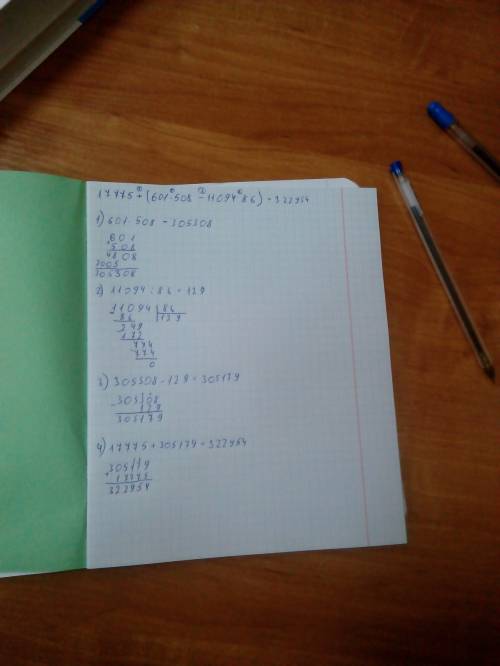 17775 + (601·508 - 11094:86) = 322954
1) 601·508 = 305308
601
508
4808
3005
305308
2) 11094 : 86 = 129
11094 86
86 129
249
172
774
774
0
3) 305308 - 129 = 305179
305308
129
305179
4) 17775 + 305179 = 322954
305179
17775
322954